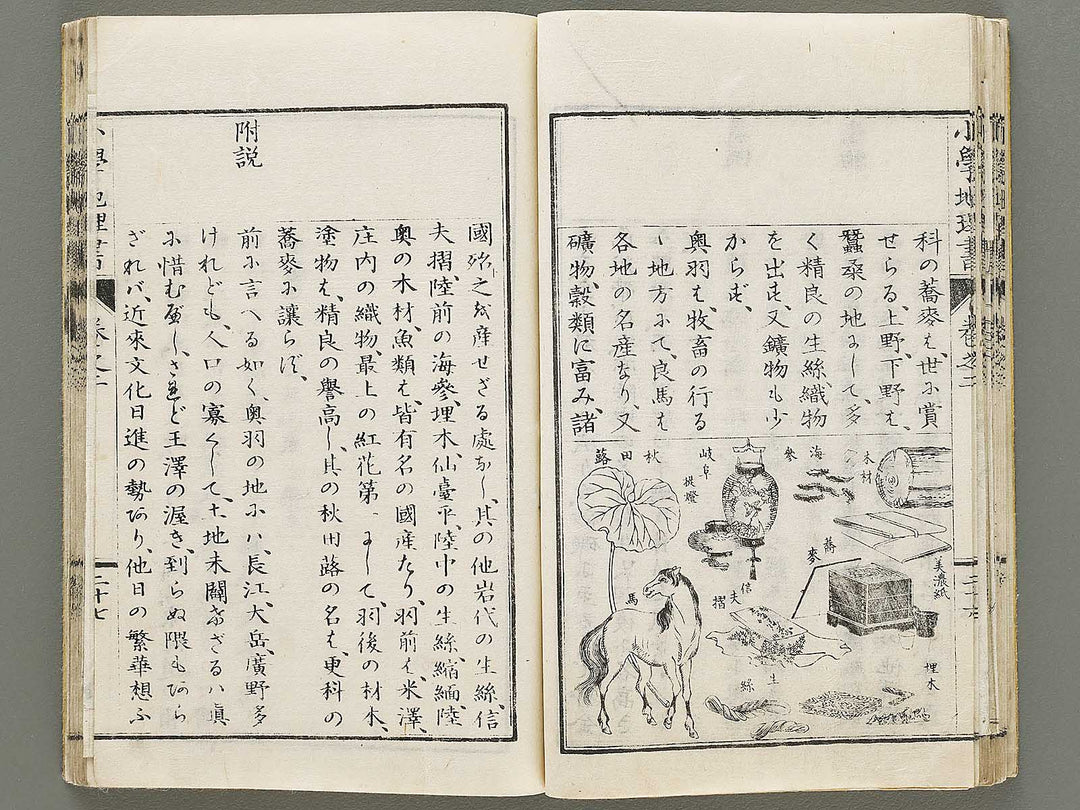 小學地理書
卷之二
科の蕎麥は、世に賞
せらる、上野下野は、
蠶桑の地にして、多
く精良の生絲織物
を出す、又鑛物も少
からず、
奥羽は、牧畜の行る
ゝ地方にて、良馬は
各地の名産なり、又
礦物、穀類に富み、諸
木材
海參
岐阜
提燈
秋田蕗
美濃紙
蕎麥
信夫摺
馬
埋木
生絲
國殆之を産せざる處なし、其の他岩代の生絲、信
夫摺、陸前の海參、埋木、仙臺平、陸中の生絲、縮緬、陸
奥の木材、魚類は、皆有名の國産たり、羽前は、米澤、
庄内の織物、最上の紅花第一にして、羽後の材木、
塗物は、精良の譽高し、其の秋田蕗の名は、更科の
蕎麥に讓らず、
附説
前に言へる如く、奥羽の地には、長江、大岳、廣野多
けれども、人口の寡くして、土地未闢けざるハ眞
に惜むべし、されど王澤の渥き、到らぬ隈もあら
ざれバ、近來文化日進の勢あり、他日の繁華想ふ
小學地理書
卷之二
二十七